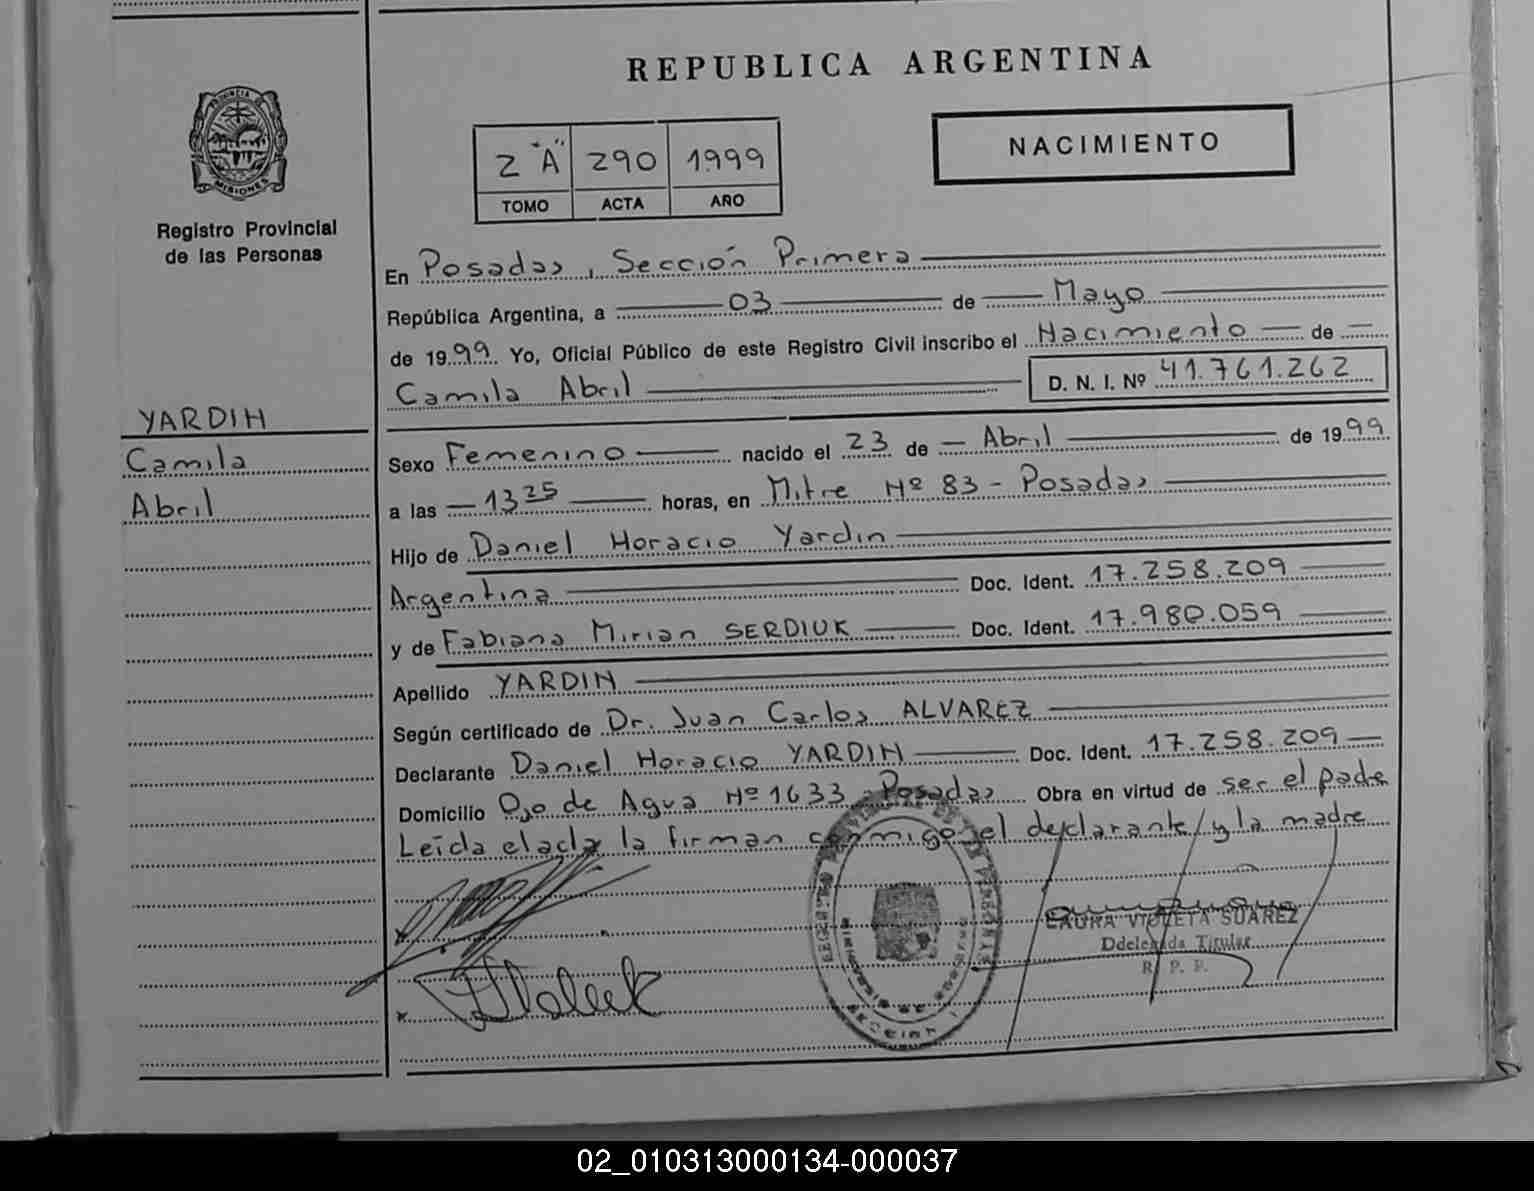 REPUBLICA ARGENTINA
PROVINCIA DE
MISIONES
Registro Provincial
de las Personas
2 "A" 290 1999
TOMO ACTA AÑO
NACIMIENTO
En Posadas, Sección Primera
República Argentina, a 03 de Mayo
de 1999 Yo, Oficial Público de este Registro Civil inscribo el Nacimiento de
Camila Abril D. N. I. Nº 41.761.262
YARDIN
Camila
Abril
Sexo Femenino nacido el 23 de Abril de 1999
a las 13 25 horas, en Mitre Nº 83 - Posadas
Hijo de Daniel Horacio Yardin
Argentina Doc. Ident. 17.258.209
y de Fabiana Mirian SERDIUK Doc. Ident. 17.980.059
Apellido YARDIN
Según certificado de Dr. Juan Carlos ALVAREZ
Declarante Daniel Horacio YARDIN Doc. Ident. 17.258.209
Domicilio Ojo de Agua Nº 1633 - Posadas Obra en virtud de ser el padre
Leída el acta la firman conmigo el declarante y la madre
LAURA VIOLETA SUAREZ
Ddelegada Titular
R. P. P.
02_010313000134-000037